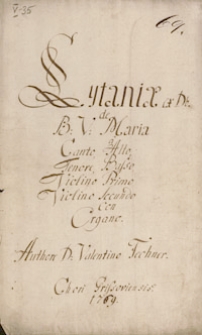 V-35
69.
Lytaniæ ex D#
de
B: V: Maria
Canto Alto,
Tenore, Basso,
Violino Primo
Violino Secundo
Con
Organo.
Authore D: Valentino Techner.
Chori Grissoviensis.
1769.